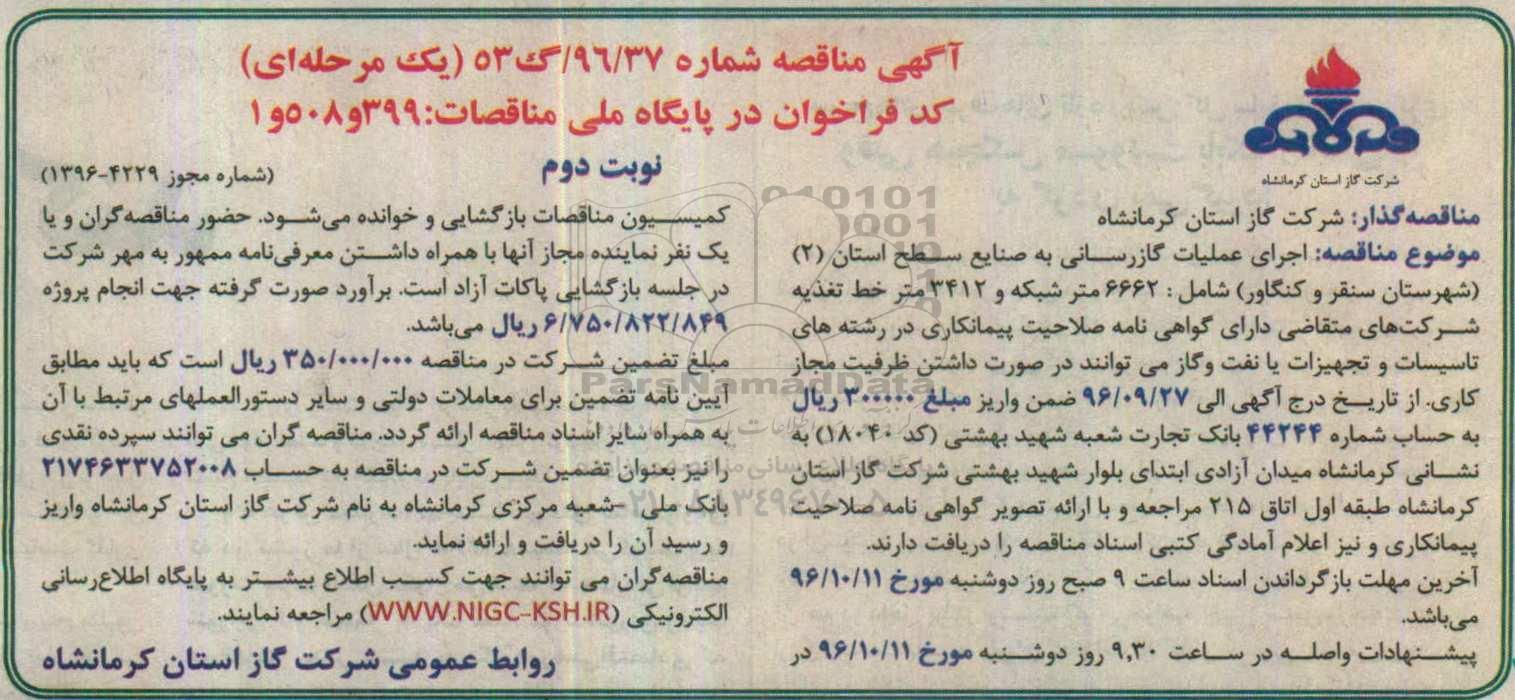 آگهی مناقصه شماره ۹۶/۳۷/گ۵۳ (یک مرحله‌ای)
کد فراخوان در پایگاه ملی مناقصات:۳۹۹و۵۰۸و۱
نوبت دوم
(شماره مجوز ۴۲۲۹-۱۳۹۶)
شرکت گاز استان کرمانشاه
مناقصه‌گذار: شرکت گاز استان کرمانشاه
موضوع مناقصه: اجرای عملیات گازرسانی به صنایع سطح استان (۲)
(شهرستان سنقر و کنگاور) شامل : ۶۶۶۲ متر شبکه و ۳۴۱۲ متر خط تغذیه
شرکت‌های متقاضی دارای گواهی نامه صلاحیت پیمانکاری در رشته های
تاسیسات و تجهیزات یا نفت وگاز می توانند در صورت داشتن ظرفیت مجاز
کاری. از تاریخ درج آگهی الی ۹۶/۰۹/۲۷ ضمن واریز مبلغ ۳۰۰۰۰۰ ریال
به حساب شماره ۴۴۲۴۴ بانک تجارت شعبه شهید بهشتی (کد ۱۸۰۴۰) به
نشانی کرمانشاه میدان آزادی ابتدای بلوار شهید بهشتی شرکت گاز استان
کرمانشاه طبقه اول اتاق ۲۱۵ مراجعه و با ارائه تصویر گواهی نامه صلاحیت
پیمانکاری و نیز اعلام آمادگی کتبی اسناد مناقصه را دریافت دارند.
آخرین مهلت بازگرداندن اسناد ساعت ۹ صبح روز دوشنبه مورخ ۹۶/۱۰/۱۱
می‌باشد.
پیشنهادات واصله در ساعت ۹,۳۰ روز دوشنبه مورخ ۹۶/۱۰/۱۱ در
کمیسیون مناقصات بازگشایی و خوانده می‌شود. حضور مناقصه‌گران و یا
یک نفر نماینده مجاز آنها با همراه داشتن معرفی‌نامه ممهور به مهر شرکت
در جلسه بازگشایی پاکات آزاد است. برآورد صورت گرفته جهت انجام پروژه
۶/۷۵۰/۸۲۲/۸۴۹ ریال می‌باشد.
مبلغ تضمین شرکت در مناقصه ۳۵۰/۰۰۰/۰۰۰ ریال است که باید مطابق
آیین نامه تضمین برای معاملات دولتی و سایر دستورالعملهای مرتبط با آن
به همراه سایر اسناد مناقصه ارائه گردد. مناقصه گران می توانند سپرده نقدی
را نیز بعنوان تضمین شرکت در مناقصه به حساب ۲۱۷۴۶۳۳۷۵۲۰۰۸
بانک ملی -شعبه مرکزی کرمانشاه به نام شرکت گاز استان کرمانشاه واریز
و رسید آن را دریافت و ارائه نماید.
مناقصه‌گران می توانند جهت کسب اطلاع بیشتر به پایگاه اطلاع‌رسانی
الکترونیکی (WWW.NIGC-KSH.IR) مراجعه نمایند.
روابط عمومی شرکت گاز استان کرمانشاه
ParsNamadData